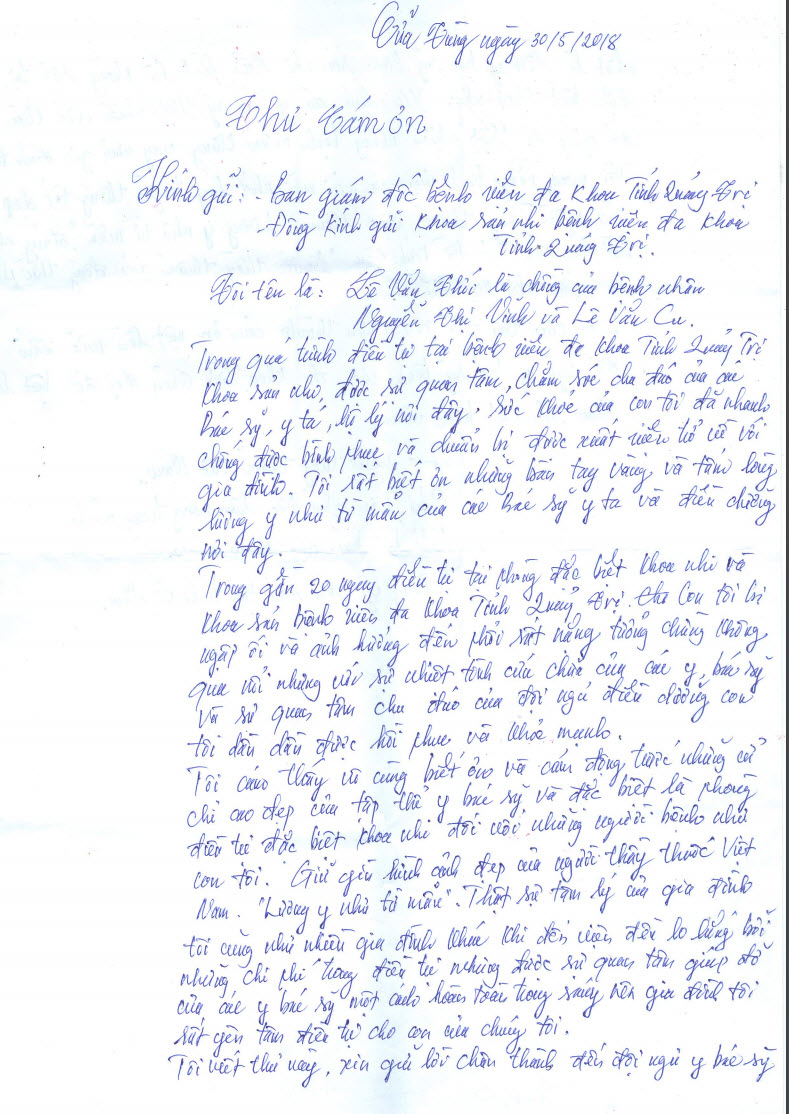 Cửa Tùng ngày 30/5/2018
Thư Cám ơn
Kính gửi: - Ban giám đốc bệnh viện đa khoa Tỉnh Quảng Trị
- Đồng kính gửi khoa sản nhi bệnh viện đa khoa
Tỉnh Quảng Trị.
Tôi tên là: Lê Văn Thí là chồng của bệnh nhân
Nguyễn Thị Vĩnh và Lê Văn Cu.
Trong quá trình điều trị tại bệnh viện đa khoa Tỉnh Quảng Trị
khoa sản nhi, được sự quan tâm, chăm sóc chu đáo của các
Bác sỹ, y tá, hộ lý nơi đây. Sức khỏe của con tôi đã nhanh
chóng được bình phục và chuẩn bị được xuất viện trở về với
gia đình. Tôi rất biết ơn những bàn tay vàng và tấm lòng
lương y như từ mẫu của các Bác sỹ y tá và điều dưỡng
nơi đây.
Trong gần 20 ngày điều trị tại phòng đặc biệt khoa nhi và
khoa sản bệnh viện đa khoa Tỉnh Quảng Trị. Con tôi bị
ngạp ối và ảnh hưởng đến phổi rất nặng tưởng chừng không
qua nỗi nhưng với sự nhiệt tình cứu chữa của các y, bác sỹ
và sự quan tâm chu đáo của đội ngũ điều dưỡng con
tôi dần dần được hồi phục và khỏe mạnh.
Tôi cảm thấy vô cùng biết ơn và cảm động trước những cử
chỉ cao đẹp của tập thể y bác sỹ và đặc biệt là phòng
điều trị đặc biệt khoa nhi đối với những người bệnh như
con tôi. Giữ gìn hình ảnh đẹp của người thầy thuốc Việt
Nam. "Lương y như từ mẫu". Thật sự tâm lý của gia đình
tôi cũng như nhiều gia đình khác khi đến viện đều lo lắng bởi
những chi phí trong điều trị nhưng được sự quan tâm giúp đỡ
của các y bác sỹ một cách hoàn toàn trong sáng nên gia đình tôi
rất yên tâm điều trị cho con của chúng tôi.
Tôi viết thư này, xin gửi lời chân thành đến đội ngũ y bác sỹ